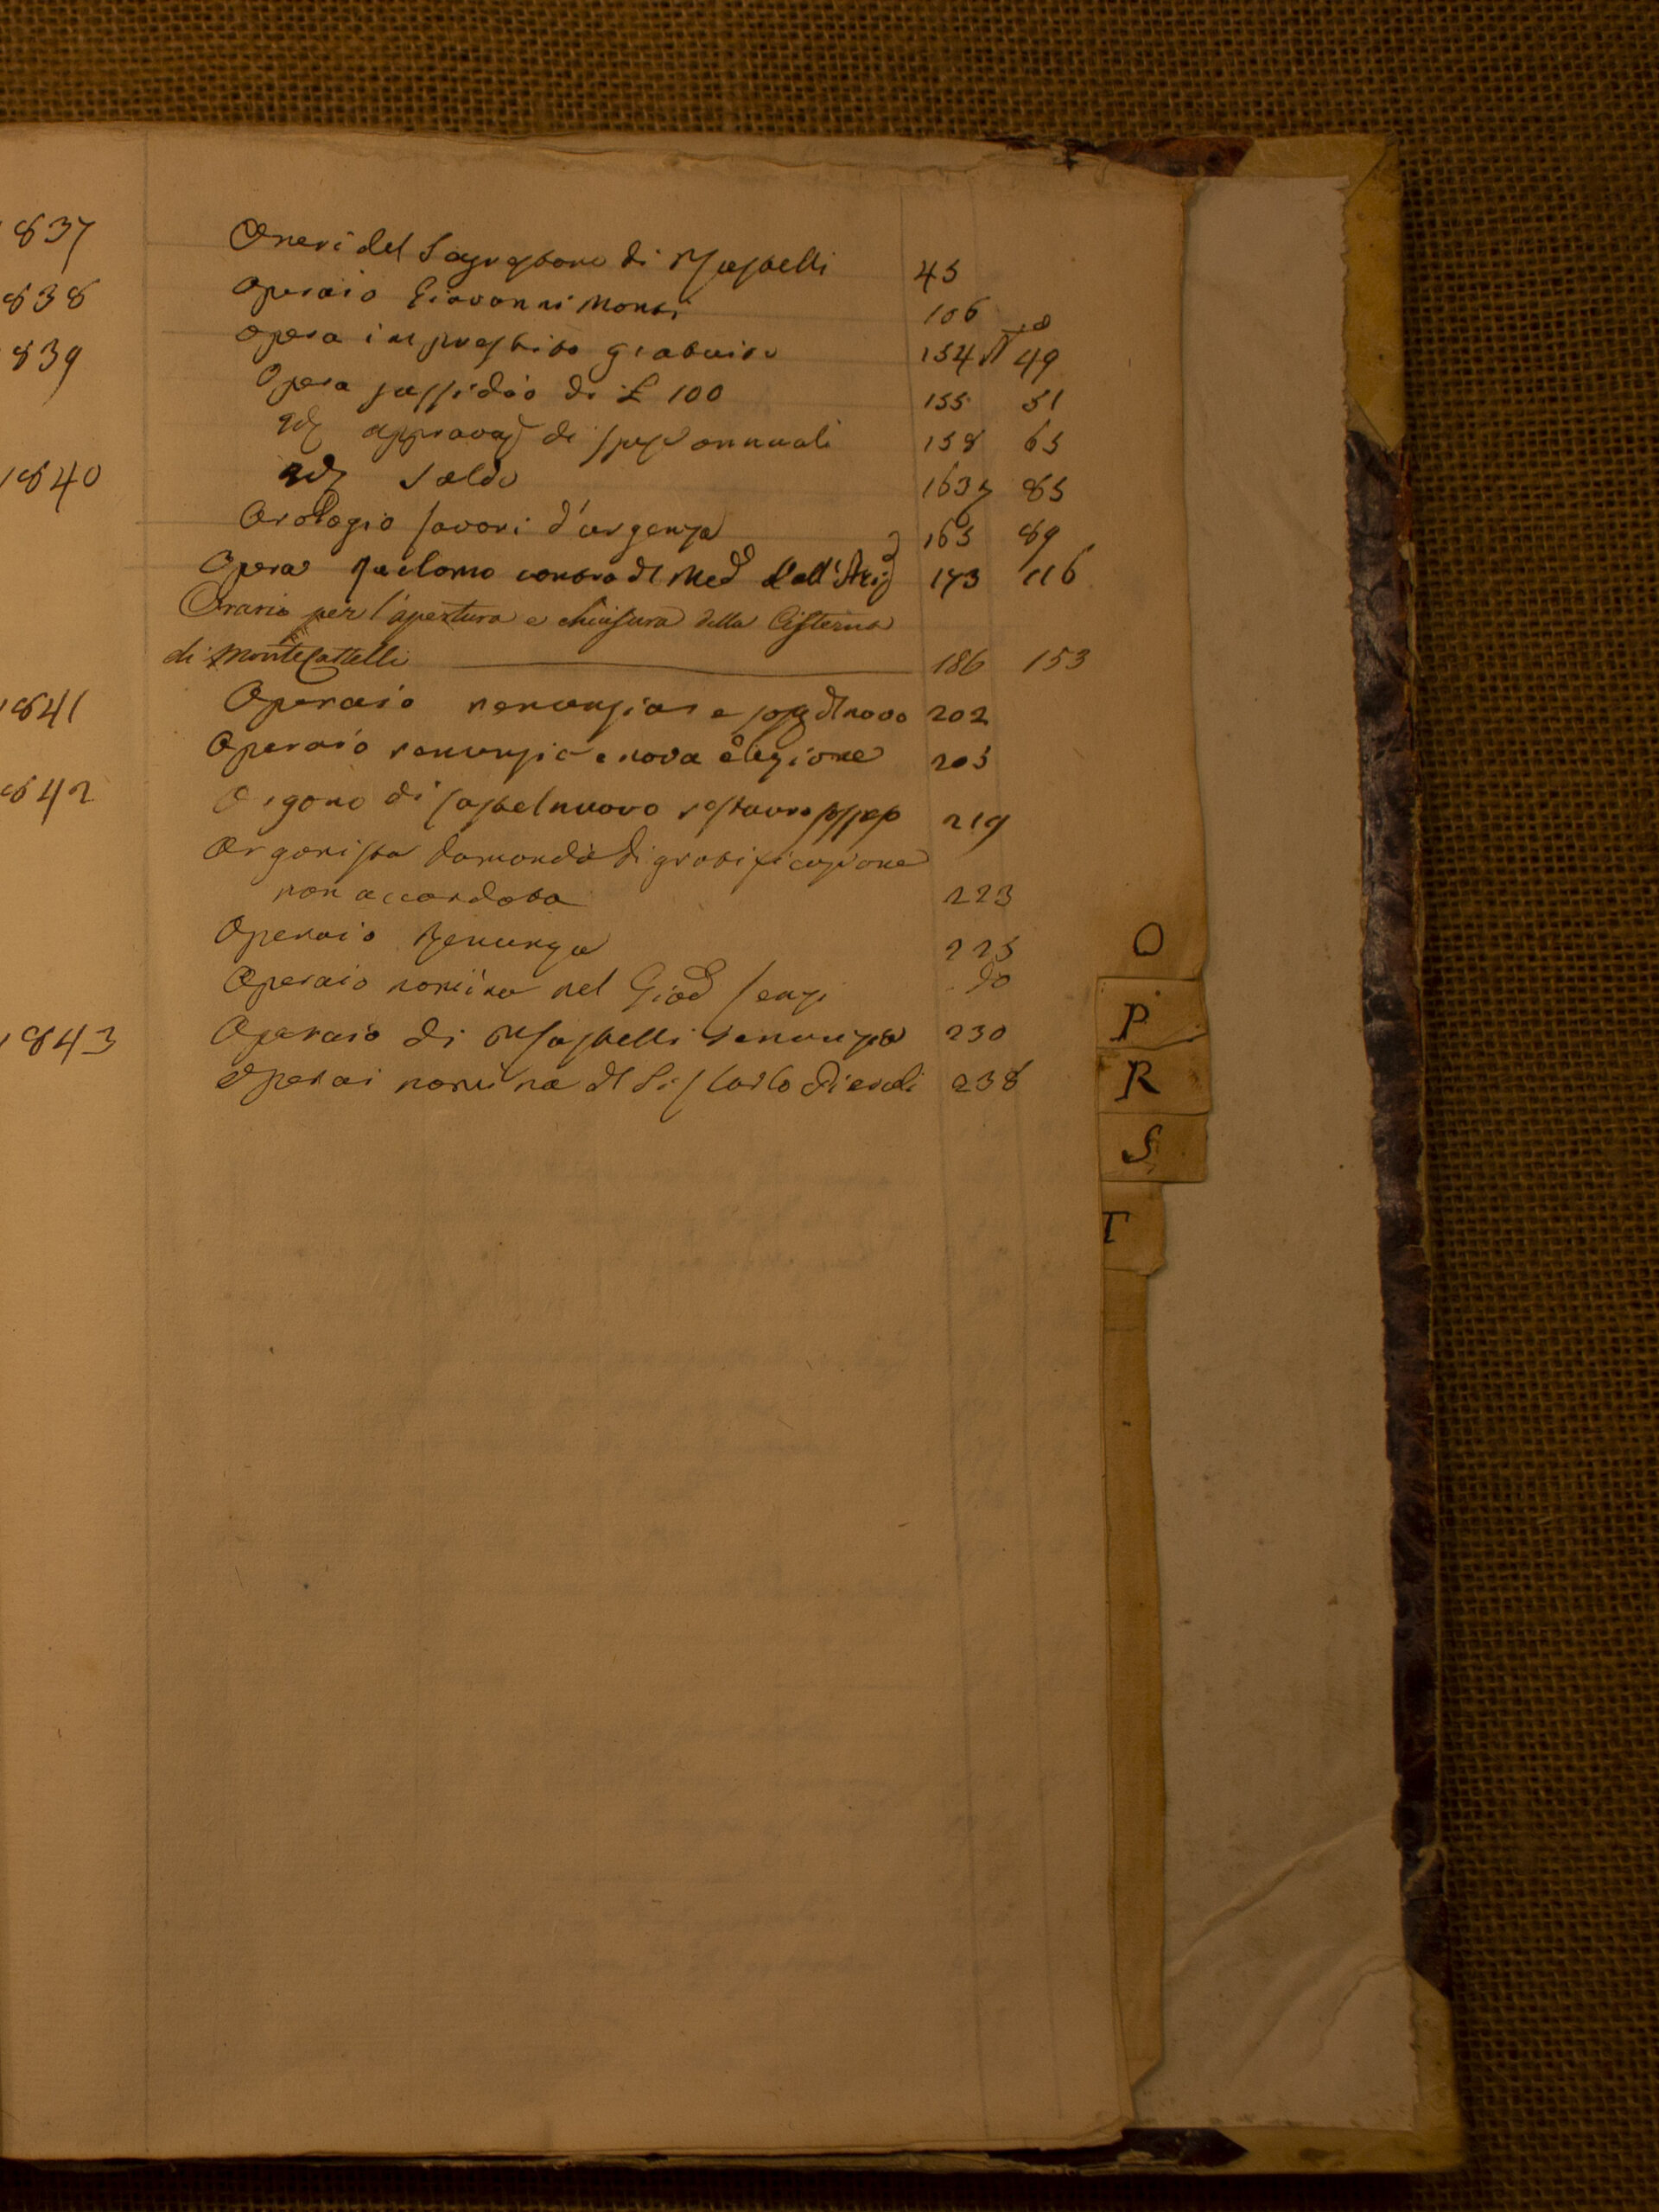 1837 Oneri del Sagrestano di Mastelli 45
1838 Operaio Giovanni Monti 106
1839 Opera imprestito gratuito 154 49
Opera sussidio di £ 100 155 51
approvaz di spese annuali 158 65
Saldo 163 85
1840 Orologio lavori d'urgenza 165 89
Opera reclamo contro dl Med dell' 173 116
Orario per l'apertura e chiusura della Cisterna
di MonteCastelli 186 153
1841 Operaio renunzia e nuovo 202
Operaio renunzia e nova elezione 205
1842 Organo di Castelnuovo restauro 219
Organista domanda di gratificazione
non accordata 223
Operaio Renunza 225
Operaio nomina nel Giod do
1843 Operaio di Mastelli renunzia 230
Operai nomina dl Carlo 238
O
P
R
S
T